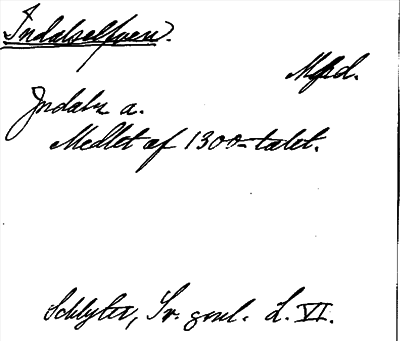 Indalselfven.
Mpd.
Indalz a.
Medlet af 1300-talet.
Schlyter, Sv. gml. L. VI.